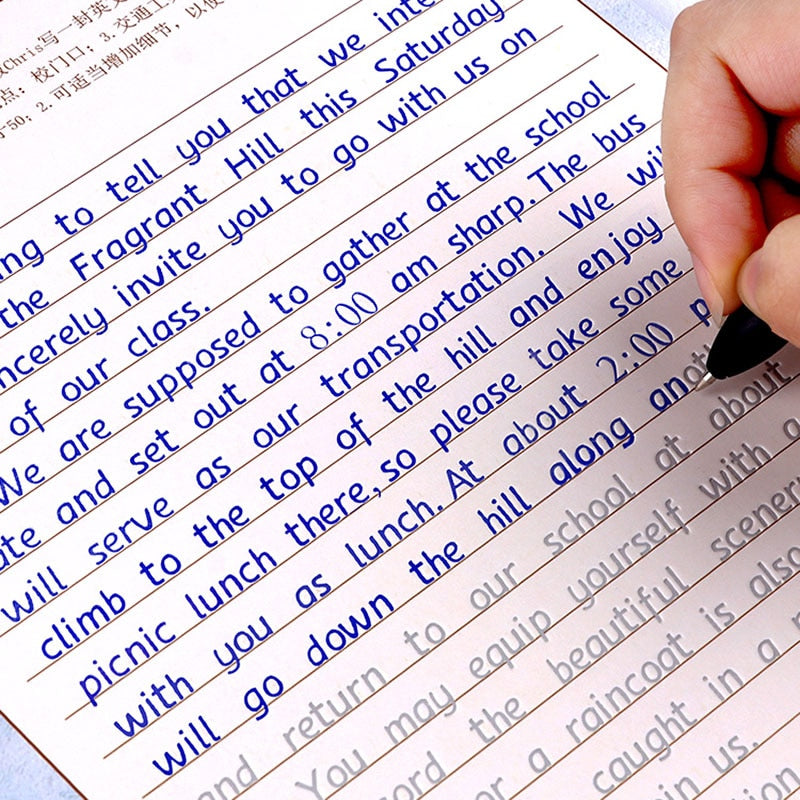 Chris写一封英文
点:校门口;3.交通工
50;2.可适当增加细节,以使
to tell you that we inte
the Fragrant Hill this Saturday
ncerely invite you to go with us on
of our class.
We are supposed to gather at the school
ate and set out at 8:00 am sharp.The bus
will serve as our transportation. We wil
climb to the top of the hill and enjoy
picnic lunch there,so please take some
with you as lunch.At about 2:00 p
will go down the hill along anoth
and return to our school at about
You may equip yourself with a
ord the beautiful scener
or a raincoat is also
caught in a
in us.